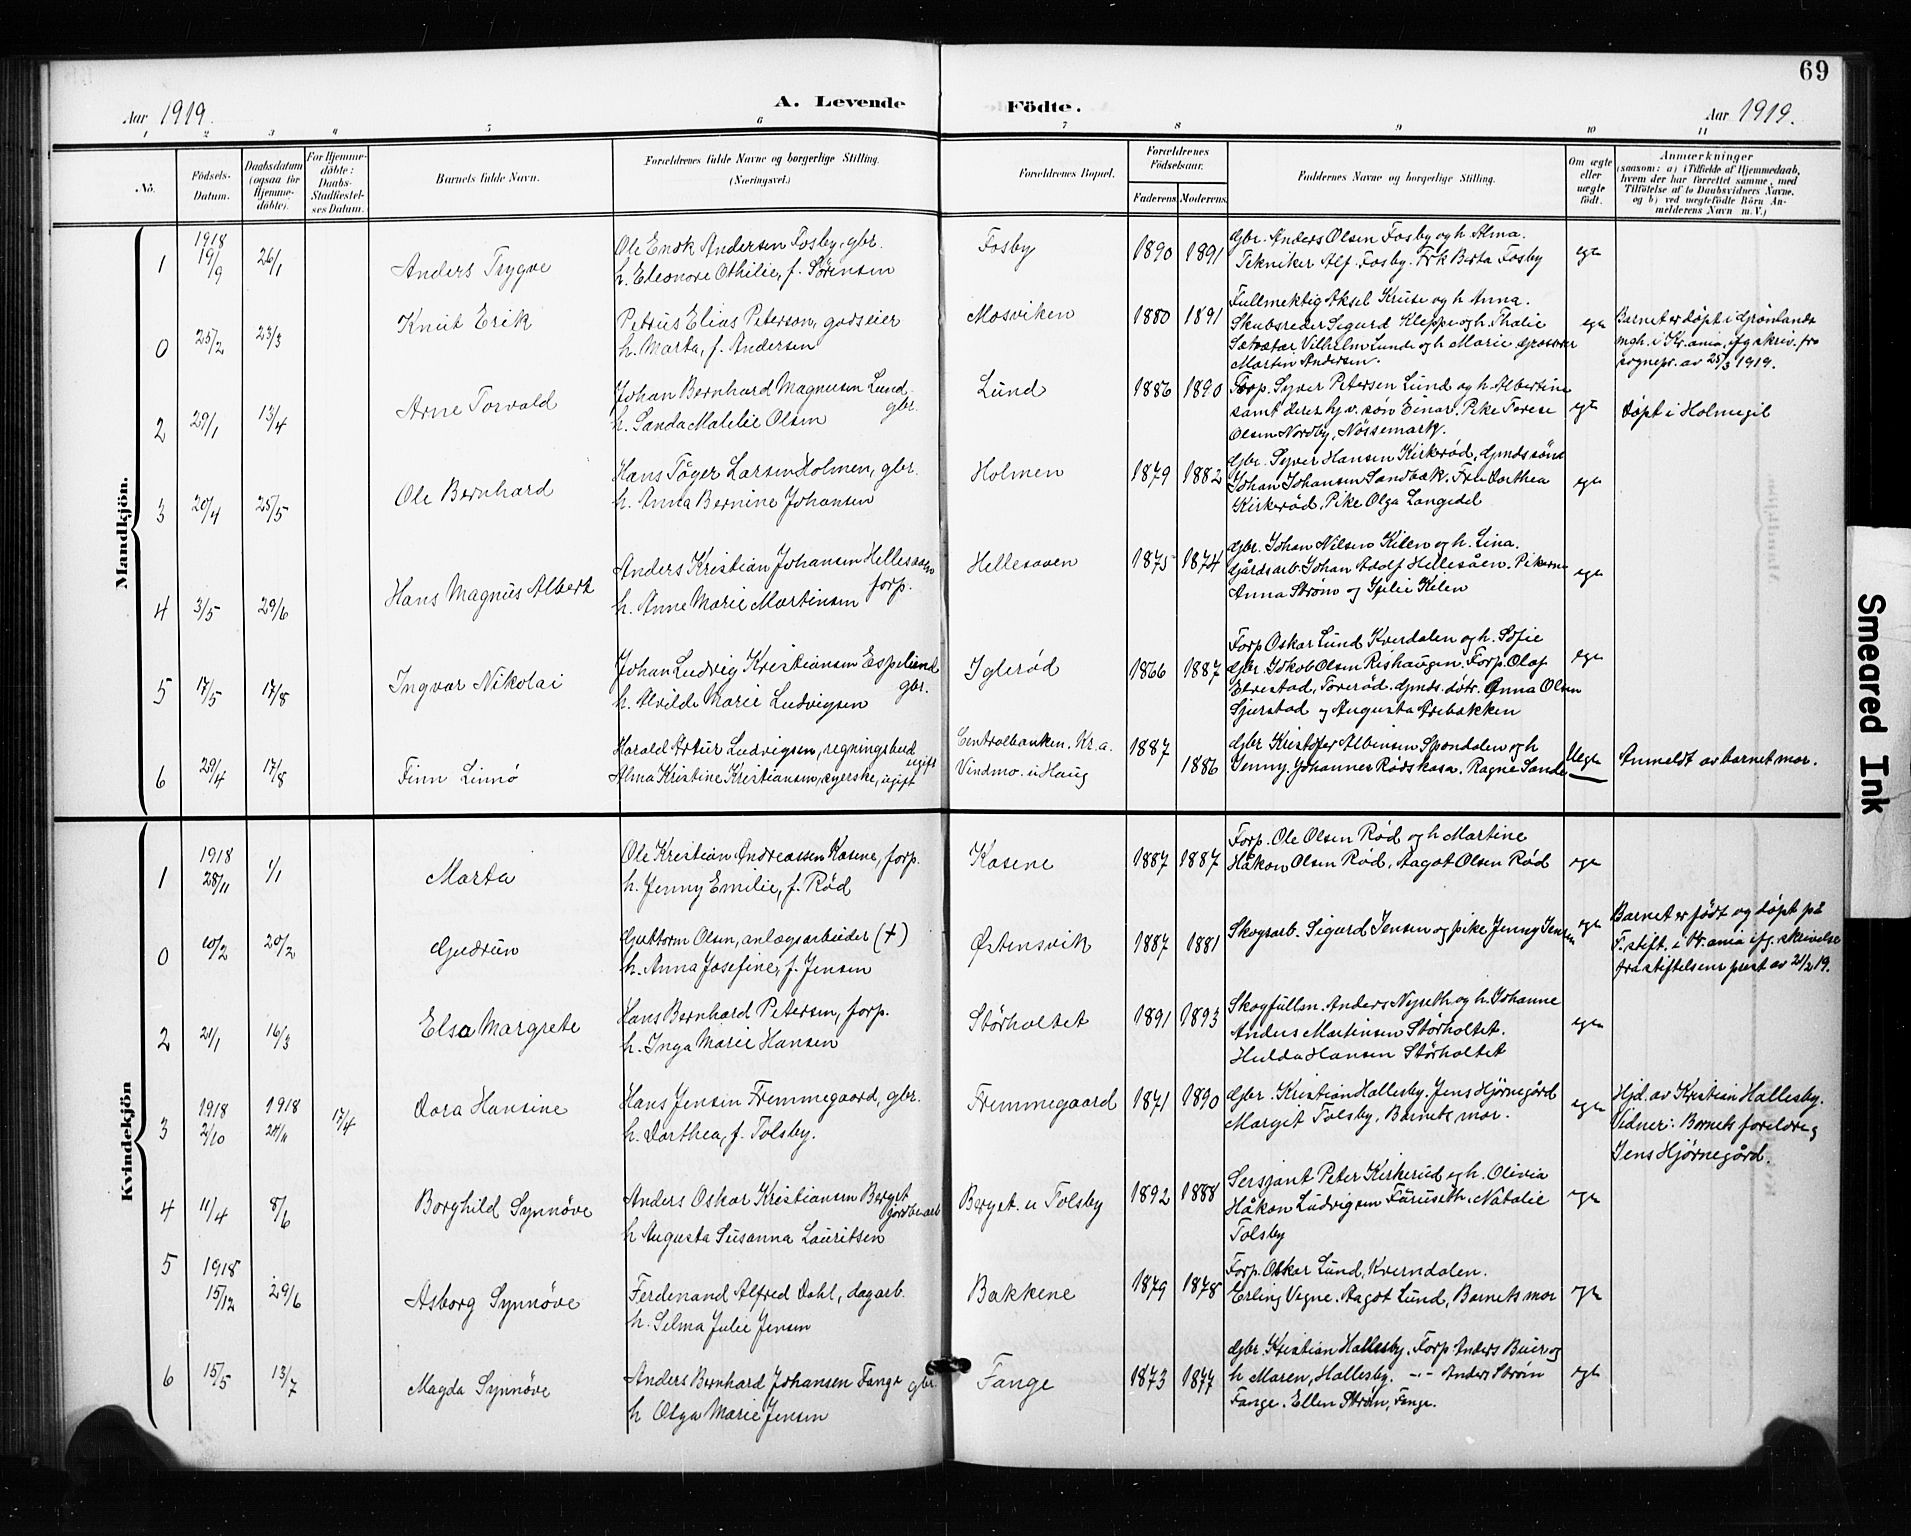 69
Aar 1919.
A. Levende Födte.
Aar 1919.
1 2 3 4 5 6 7 8 9 10 11
No.
Födsels-Datum.
Daabsdatum (ogsaa for Hjemme-döbte).
For Hjemme-döbte: Daabs-Stadfæstel-ses Datum.
Barnets fulde Navn.
Forældrenes fulde Navne og borgerlige Stilling. (Næringsvei.)
Forældrenes Bopæl.
Forældrenes Födselsaar.
Faderens Moderens
Faddernes Navne og borgerlige Stilling.
Om ægte eller uægte födt.
Anmærkninger
(saasom: a) i Tilfælde af Hjemmedaab, hvem der har forrettet samme, med Tilföielse af to Daabsvidners Navne, og b) ved uægtefödte Börn An-melderens Navn m. V.)
Mandkjön.
1 1918 19/9 26/1 Anders Trygve
Ole Enok Andersen Fosby, gbr.
h. Eleonore Othilie, f. Sørensen
Fosby 1890 1891
Gbr. Anders Olsen Fosby og h. Alma.
Tekniker Alf. Fosby. Frk Berta Fosby
egte
0 25/2 23/3 Knut Erik
Petrus Elias Peterson, godseier
h. Marta, f. Andersen
Mosviken 1880 1891
Fullmektig Aksel Kruse og h. Anna.
Skibsreder Sigurd Kleppe og h. Thalie
Vilhelm Lunde og h Marie Grosserer
Martin Andersen.
egte
Barnet er døpt i Grønlands
mgh. i Kr.ania, ifg skriv. fra
sognepr. av 25/3 1919.
2 29/1 13/4 Arne Torvald
Johan Bernhard Magnusen Lund
gbr.
h. Sanda Matilie Olsen
Lund 1886 1890
Forp. Syver Petersen Lund og h. Albertine
samt deres hjv. søn Einar. Pike Torese
Olsen Nordby, Nössemark.
egte
Døpt i Holmegil
3 20/4 25/5 Ole Bernhard
Hans Töger Larsen Holmen, gbr.
h. Anna Bernine Johansen
Holmen 1879 1882
Gbr. Syver Hansen Kirkerød, Gmdssönn
Johan Johansen Sandbæk. Fru Dorthea
Kirkerød, Pike Olga Langedel
egte
4 3/5 29/6 Hans Magnus Albert
Anders Kristian Johansen Hellesaaen
forp.
h. Anne Marie Martinsen
Hellesaaen 1875 1874
Gbr. Johan Nilsen Kilen og h. Lina.
Gårdsarb. Johan Adolf Hellesåen. Pikerne
Anna Strøm og Kilen
egte
5 17/5 17/8 Ingvar Nikolai
Johan Ludvig Kristiansen Espelund
gbr.
h. Alvilde Marie Ludvigsen
Iglerød 1866 1887
Forp Oskar Lund Kverdalen og h. Sofie
Gbr. Jokob Olsen Rishaugen. Forp. Olaf
Elvestad, Torerød. Gmds. dötr. Anna Olsen
Sjurstad og Augusta Arebakken
egte
6 29/4 17/8 Finn Linnö
Harald Artur Ludvigsen, regningsbud
ugift
Alma Kristine Kristiansen, syerske, ugift
Centralbanken. Kr.a.
Vindmo. u Haug
1887
1886
Gbr Kristofer Albinsen Spondalen og h
Jenny. Johannes Rødskasa. Ragne Sande
Uegte
Anmeldt av barnets mor.
Kvindekjön
1 1918 28/11 1/1 Marta
Ole Kristian Andreassen Kasene, forp.
h. Jenny Emilie, f. Rød
Kasene 1887 1887
Forp. Ole Olsen Rød og h Martine
Håkon Olsen Rød, Aagot Olsen Rød
egte
0 10/2 20/2 Gudrun
Guttorm Olsen, anlægsarbeider (+)
h. Anna Josefine, f. Jensen
Østensvik 1887 1881
Skogsarb. Sigurd Jensen og pike Jenny Jensen
egte
Barnet er født og døpt på
F. stift. i Kr.ania ifg. skrivelse
fra stiftelsens prest av 21/2 19.
2 21/1 16/3 Elsa Margrete
Hans Bernhard Petersen, forp.
h. Inga Marie Hansen
Störholtet 1891 1893
Skogfullm. Anders Nyseth og h. Johanne
Anders Martinsen Störholtet.
Hulda Hansen Störholtet
egte
3 1918 2/10 1918 24/11 17/4 Dora Hansine
Hans Jensen Fremmegaard, gbr.
h. Dorthea, f. Tolsby.
Fremmegaard 1871 1890
Gbr. Kristian Hallesby. Jens Hjørnegård
Marget Tolsby, Barnets mor.
egte
Hjd. av Kristian Hallesby.
Vidner: Barnets foreldre og
Jens Hjørnegård.
4 11/4 8/6 Borghild Synnöve
Anders Oskar Kristiansen Berget
jordbr.arb
h Augusta Susanna Lauritsen
Berget. u Tolsby 1892 1888
Sersjant Peter Kirkerud og h. Olivia
Håkon Ludvigsen Furuseth. Natalie
Tolsby
egte
5 1918 15/12 29/6 Asborg Synnöve
Ferdenand Alfred Dahl, dagarb.
h. Selma Julie Jensen
Bakkene 1879 1878
Forp. Oskar Lund, Kverndalen.
Erling Vegne. Aagot Lund, Barnets mor
egte
6 15/5 13/7 Magda Synnöve
Anders Bernhard Johansen Fange gbr.
h Olga Marie Jensen
Fange 1873 1877
Gbr. Kristian Hallesby. Forp Anders Buer og
h Maren, Hallesby. -"- Anders Strøm
Fange. Ellen Strøm, Fange.
egte
Smeared Ink